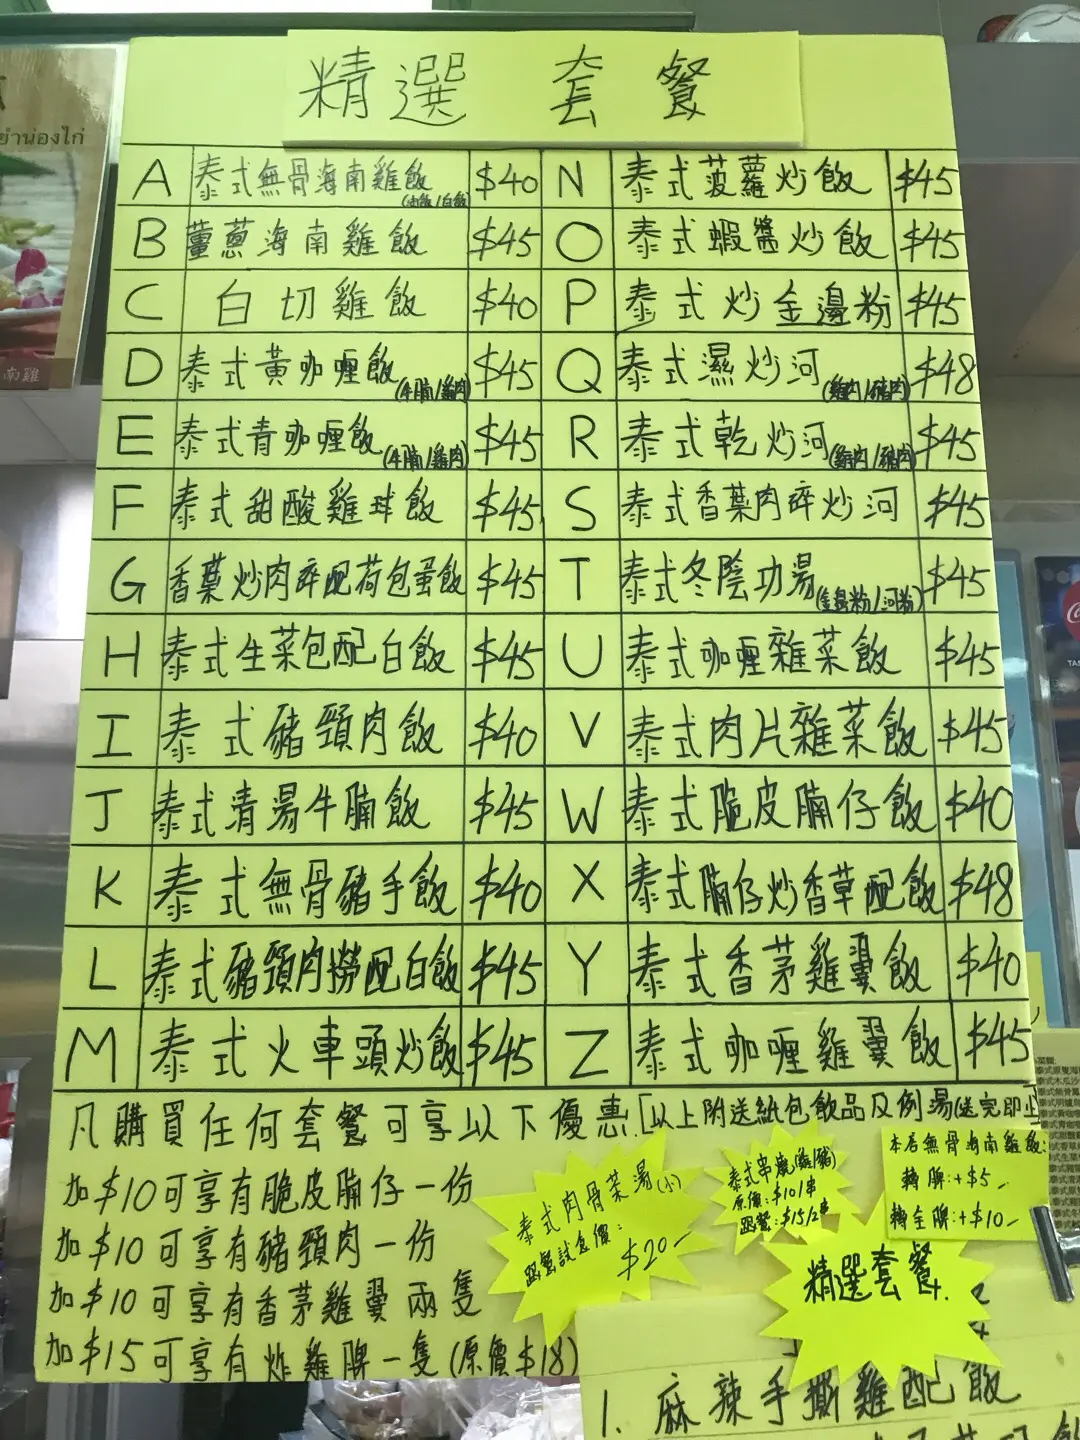 精選 套餐
A 泰式無骨海南雞飯 (油飯/白飯) $40
B 薑蔥海南雞飯 $45
C 白切雞飯 $40
D 泰式黃咖喱飯 (牛腩/雞肉) $45
E 泰式青咖喱飯 (牛腩/雞肉) $45
F 泰式甜酸雞球飯 $45
G 香葉炒肉碎配荷包蛋飯 $45
H 泰式生菜包配白飯 $45
I 泰式豬頸肉飯 $40
J 泰式清湯牛腩飯 $45
K 泰式無骨豬手飯 $40
L 泰式豬頸肉撈配白飯 $45
M 泰式火車頭炒飯 $45
N 泰式菠蘿炒飯 $45
O 泰式蝦醬炒飯 $45
P 泰式炒金邊粉 $45
Q 泰式濕炒河 (雞肉/豬肉) $48
R 泰式乾炒河 (雞肉/豬肉) $45
S 泰式香葉肉碎炒河 $45
T 泰式冬陰功湯 (金邊粉/河粉) $45
U 泰式咖喱雜菜飯 $45
V 泰式肉片雜菜飯 $45
W 泰式脆皮腩仔飯 $40
X 泰式腩仔炒香草配飯 $48
Y 泰式香茅雞翼飯 $40
Z 泰式咖喱雞翼飯 $45
凡購買任何套餐可享以下優惠 [以上附送紙包飲品及例湯(送完即止
加$10可享有脆皮腩仔一份
加$10可享有豬頸肉一份
加$10可享有香茅雞翼兩隻
加$15可享有炸雞脾一隻 (原價$18)
泰式肉骨茶湯(小)
跟餐試食價:
$20-
泰式串燒(雞/豬)
原價:$10/串
跟餐:$15/2串
本店無骨海南雞飯:
轉脾:+$5-
轉全脾:+$10-
精選套餐
1. 麻辣手撕雞配飯
ยำน่องไก่
南雞